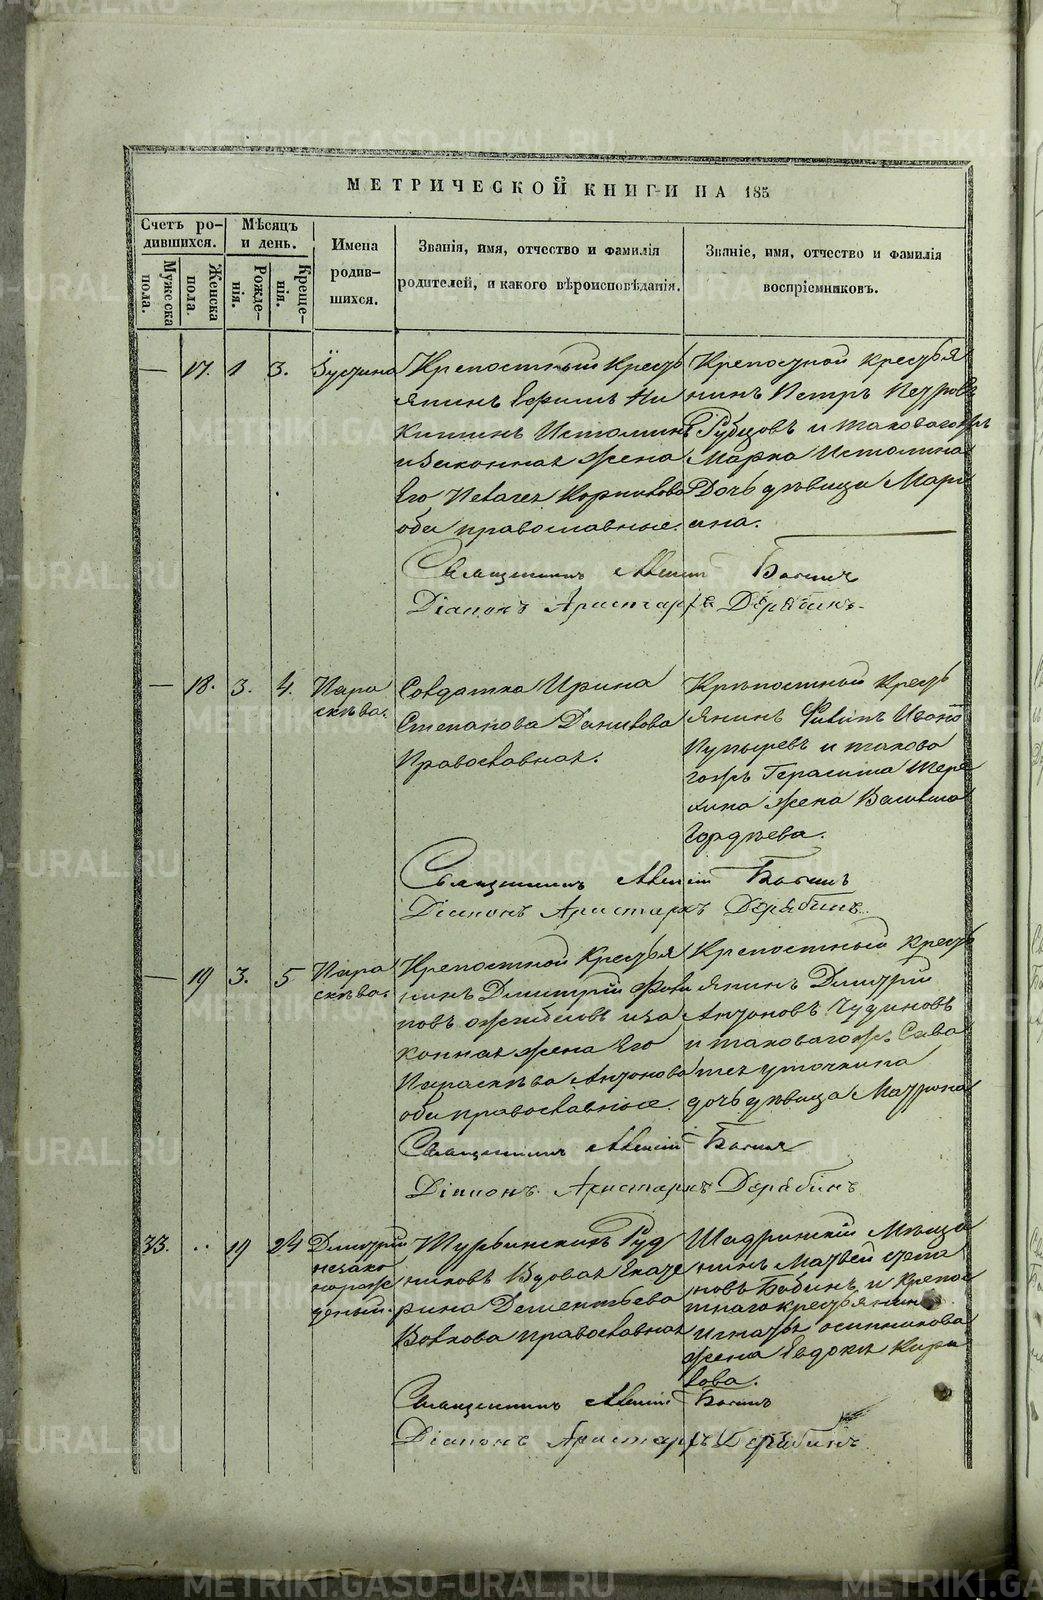 МЕТРИЧЕСКОЙ КНИГИ НА 185
Счетъ ро-
дившихся.
Мужеска
пола.
Женска
пола
Мѣсяцъ
и день.
Рожде-
нія.
Креще-
нія.
Имена
родив-
шихся.
Званія, имя, отчество и фамилія
родителей, и какого вѣроисповѣданія.
Званіе, имя, отчество и фамилія
воспріемниковъ.
— 17. 1 3.
Іустина
Крепостный Кресть
янинъ Ефимъ Ни
китинъ Истоминъ
и Законная жена
Его Корнилова
оба православные.
Крепостной крестья
нинъ Петръ Петровъ
Рубцовъ и таковагожъ
Марка Истомина
Дочь дѣвица Мари
ана.
Священникъ Алексій Бабинъ
Діаконъ Аристархъ Дерябинъ.
— 18. 3. 4.
Пара
скѣва.
Солдатка Ирина
Степанова Данилова
Православная.
Крѣпостный Кресть
янинъ Филипъ Ивано
Пупыревъ и таково
гожъ Герасима Тере
хина жена Василиса
Гордѣева.
Священникъ Алексій Бабинъ
Діаконъ Аристархъ Дерябинъ.
— 19 3. 5
Пара
скѣва.
Крепостной Крестья
нинъ Дмитрій
повъ и за
конная жена Его
Параскѣва Антонова
оба православные.
Крепостный кресть
янинъ Дмитрій
Антоновъ Чудиновъ
и таковагожъ Сава
тея уточкина
дочь дѣвица Матрона
Священникъ Алексій Бабинъ
Діаконъ Аристархъ Дерябинъ
33. .. 19 24
Дмитрій
незако
норож
денный.
Турьинскихъ Руд
никовъ Вдова Екате
рина Дементьева
Волкова православная
Шадринскій Мѣща
нинъ Матвей степа
новъ Бабинъ и Крепос
тнаго крестьянина
Игнатья осинникова
жена Евдокия Кири
лова.
Священникъ Алексій Бабинъ
Діаконъ Аристархъ Дерябинъ
METRIKI.GASO-URAL.RU